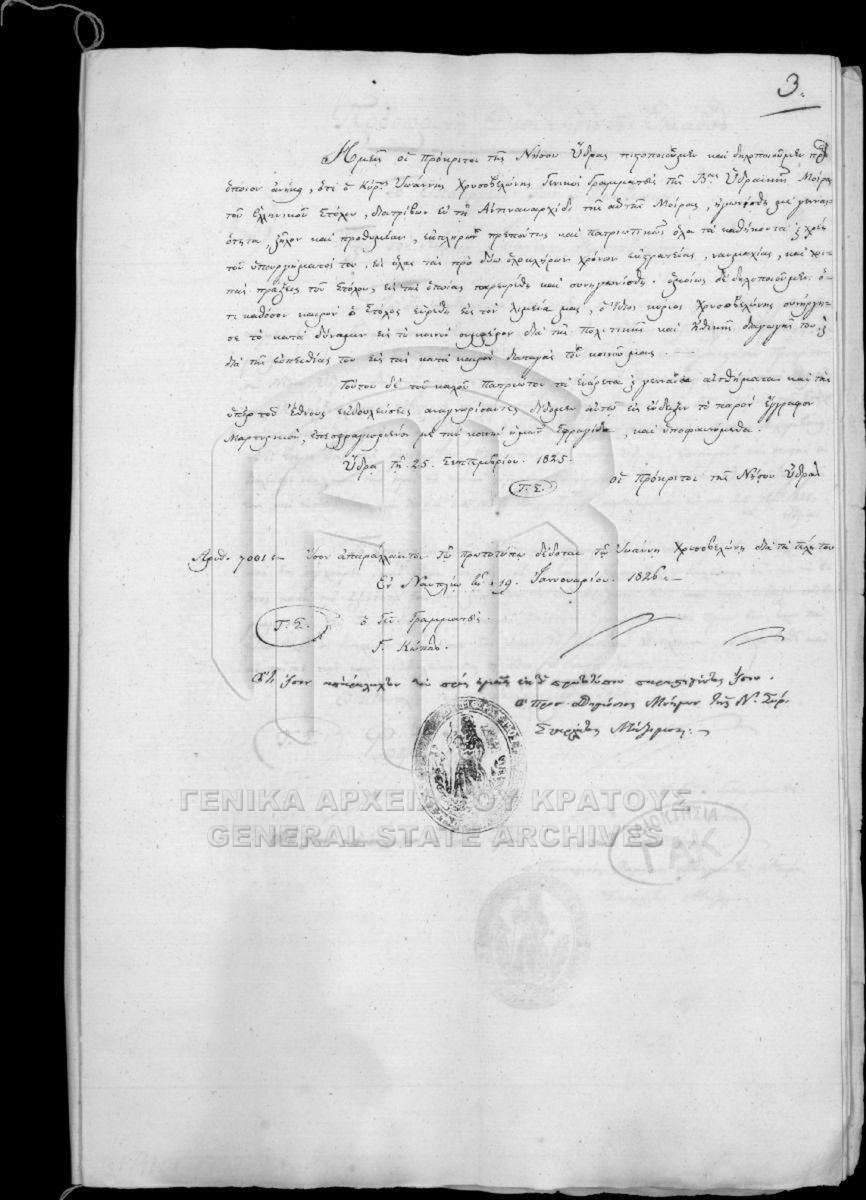 3.
Ἡμεῖς οἱ πρόκριτοι τῆς Νήσου Ὕδρας πιστοποιοῦμεν καὶ δηλοποιοῦμεν πρὸς
ὁποῖον ἀνήκῃ, ὅτι ὁ Κύρ. Ἰωάννης Χρυσοβελώνης Γενικὸς Γραμματεὺς τῆς Βας Ὑδραϊκῆς Μοίρας
τοῦ Ἑλληνικοῦ Στόλου, διατρίβων ἐν τῇ Ἀντιναυαρχίδι τῆς αὐτῆς Μοίρας, ἠγωνίσθη μὲ γενναι-
ότητα, ζῆλον καὶ προθυμίαν, ἐκπληρῶν πρεπόντως καὶ πατριωτικῶς ὅλα τὰ καθήκοντα χρέη
τοῦ ὑπουργήματός του, εἰς ὅλας τὰς πρὸ δύω ὁλοκλήρων χρόνων ἐκστρατείας, ναυμαχίας, καὶ λοι-
πὰς πράξεις τοῦ Στόλου, εἰς τὰς ὁποίας παρευρέθη καὶ συνηγωνίσθη. ὁμοίως δὲ δηλοποιοῦμεν ὅ-
τι καθ' ὅσον καιρὸν ὁ Στόλος εὑρέθη εἰς τὸν λιμένα μας, ὁ ἴδιος κύριος Χρυσοβελώνης συνήργη-
σε τὸ κατὰ δύναμιν εἰς τὸ κοινὸν συμφέρον διὰ τῆς πολιτικῆς καὶ ἠθικῆς διαγωγῆς του,
διὰ τῆς εὐπειθείας του εἰς τὰς κατὰ καιρὸν διαταγὰς τοῦ κοινοῦ μας.
Τούτου δὲ τοῦ καλοῦ πατριώτου τὰ ἐνάρετα γενναῖα αἰσθήματα καὶ τὰς
ὑπὲρ τοῦ Ἔθνους ἐκδουλεύσεις ἀναγνωρίσαντες δίδομεν αὐτῷ εἰς ἔνδειξιν τὸ παρὸν ἔγγραφον
Μαρτυρικόν, ἐπεσφραγισμένον μὲ τὴν κοινὴν ἡμῶν Σφραγίδα, καὶ ὑποφαινόμεθα.
Ὕδρα τῇ 25 Σεπτεμβρίου. 1825.
οἱ πρόκριτοι τῆς Νήσου Ὕδρας
Τ.Σ.
Ἀριθ. 7001 Ἴσον ἀπαράλλακτον τῷ πρωτοτύπῳ δίδοται τῷ Ἰωάννῃ Χρυσοβελώνῃ διὰ τὰ τέλη του
Ἐν Ναυπλίῳ τῇ 19. Ἰαννουαρίου. 1826
Τ.Σ.
ὁ Γεν. Γραμματεὺς.
Ὅτι ἴσον ἀπαράλλακτον
ὁ προσ. δημόσιος Μνήμων τῆς Ν. Σύρ.
ΓΕΝΙΚΑ ΑΡΧΕΙΑ ΤΟΥ ΚΡΑΤΟΥΣ
GENERAL STATE ARCHIVES
ΙΔΙΟΚΤΗΣΙΑ
ΓΑΚ